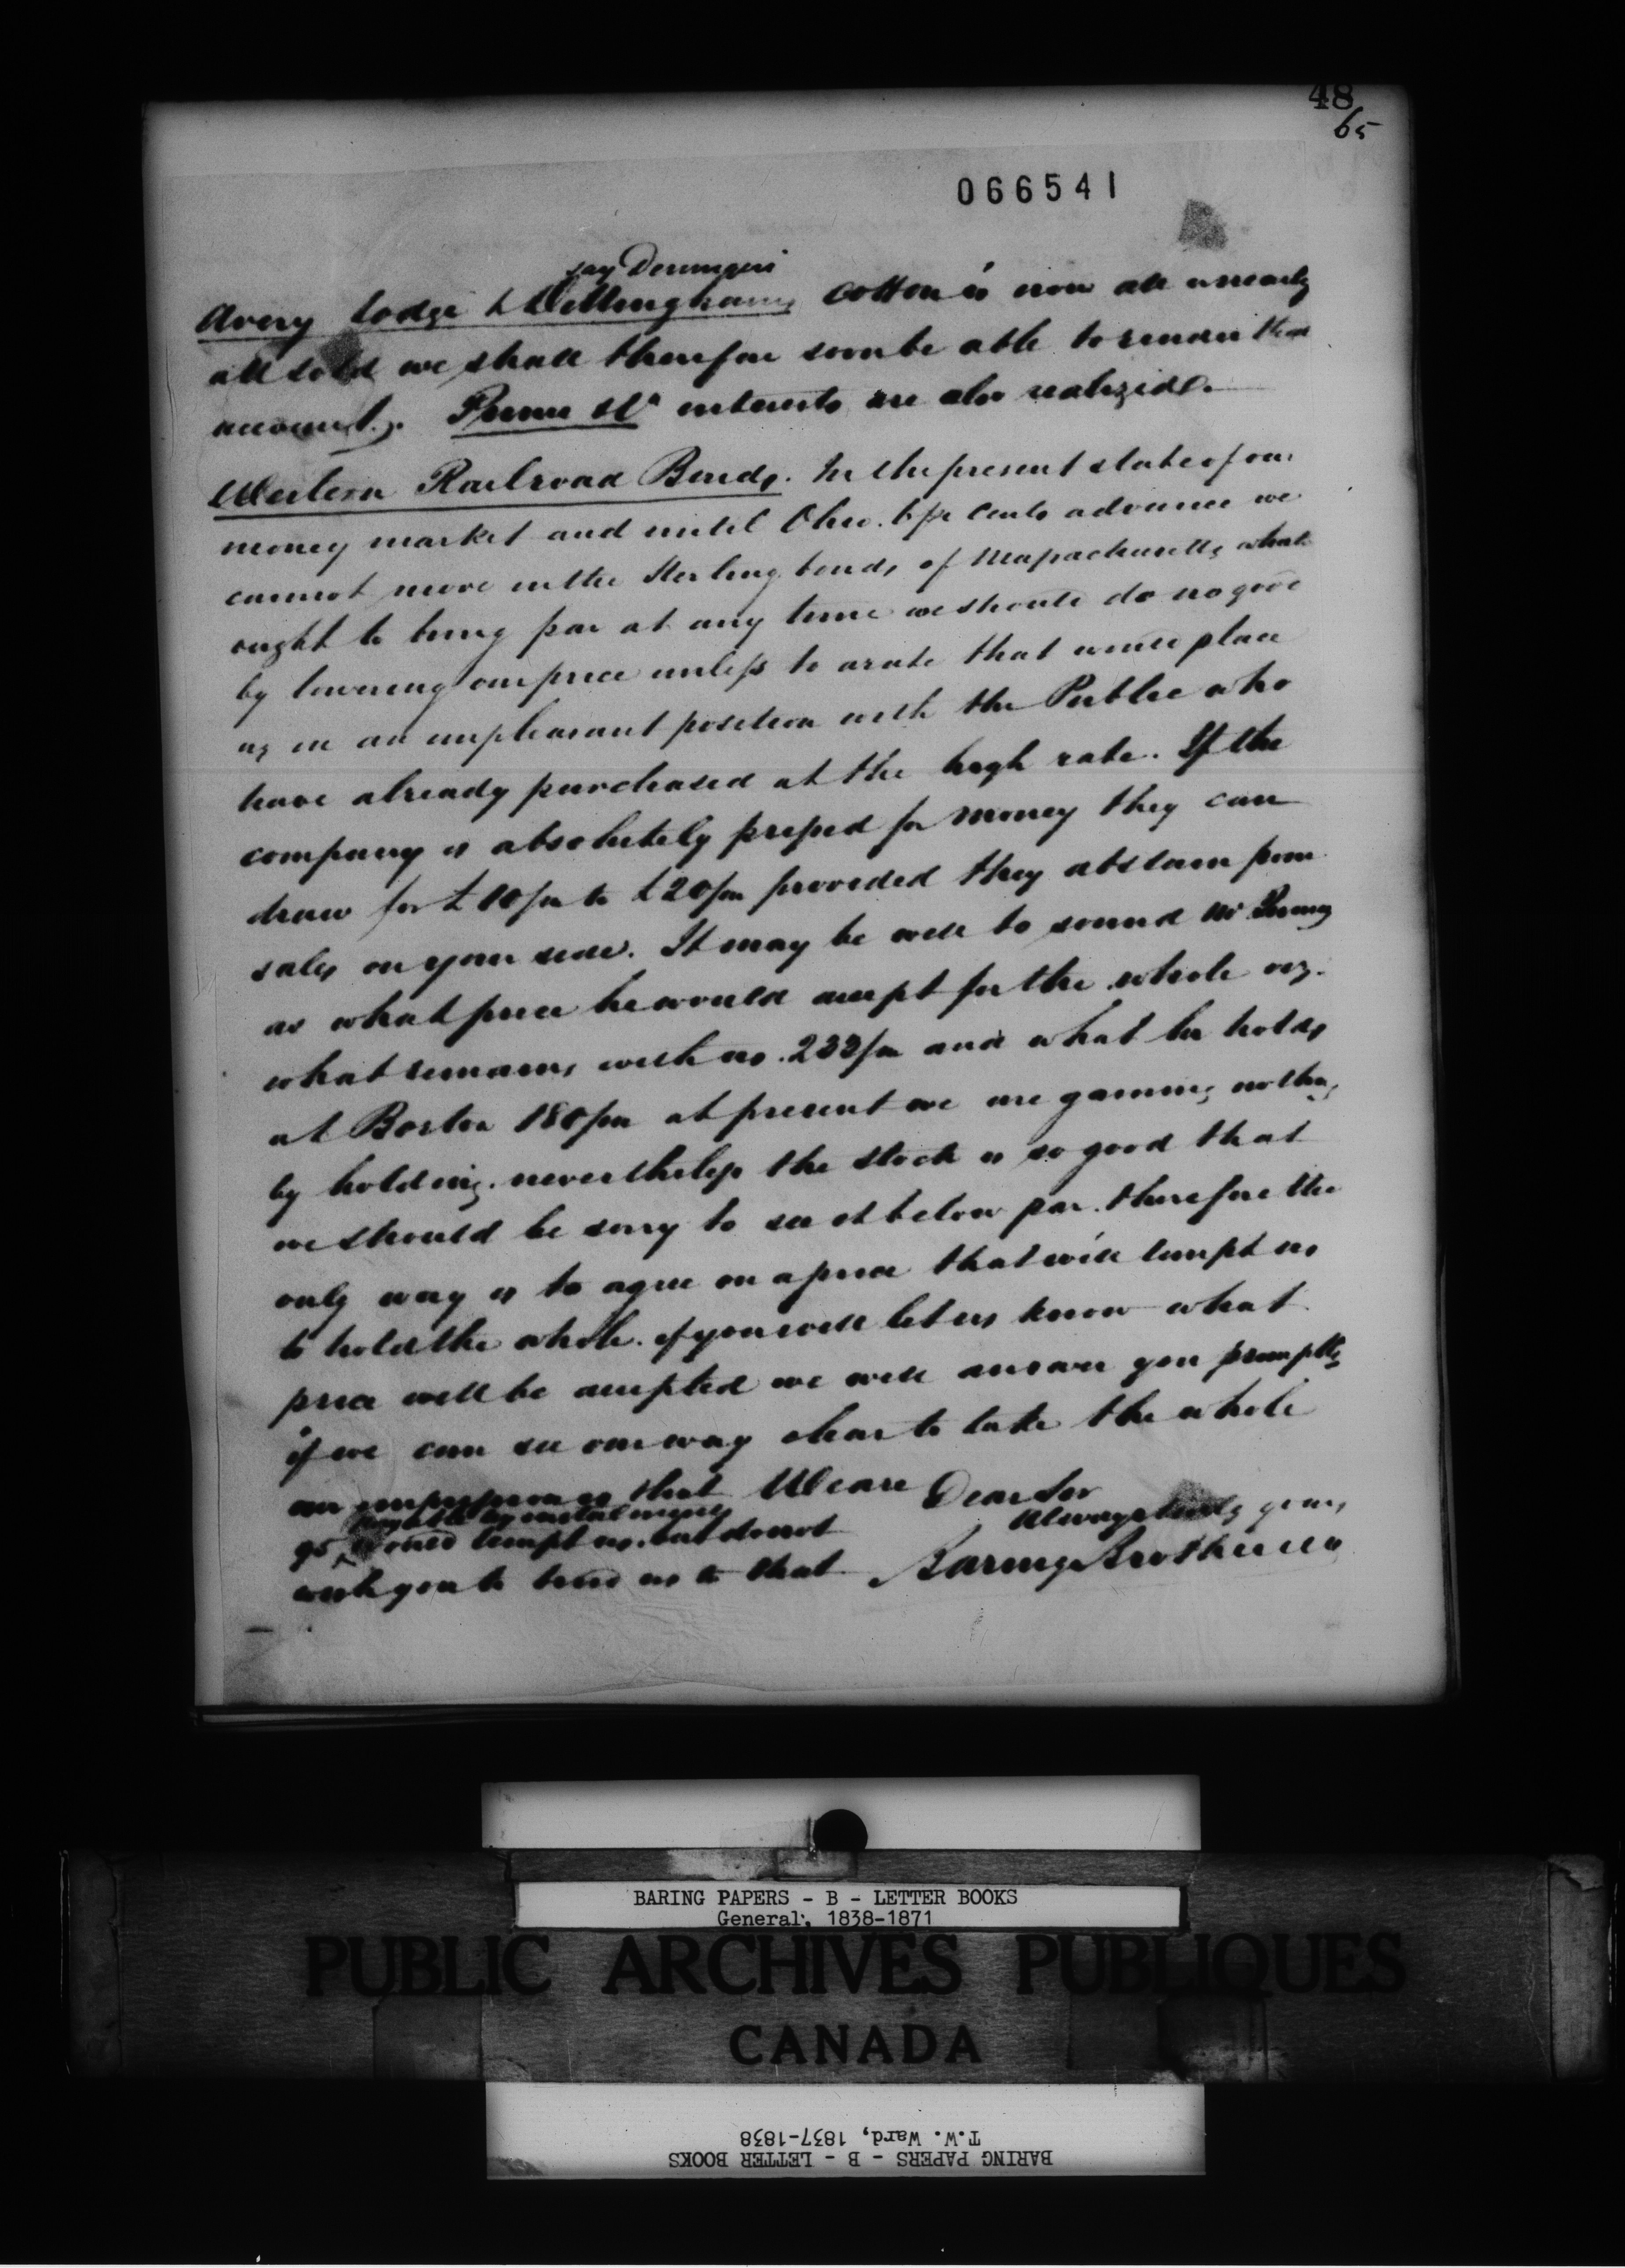 48
65
066541
say
Avery Lodge & Dillinghams cotton is now all or nearly
all sold we shall therefore soon be able to render their
accounts. interests are also realized.
Western Railroad Bonds. In the present state of our
money market and until Ohio. 6 pr Cents advance we
cannot move in the Sterling bonds of Massachusetts, what
ought to bring par at any time we should do no good
by lowering our price unless to a rate that would place
us in an unpleasant position with the Public who
have already purchased at the high rate. If the
company is absolutely pressed for money they can
draw for £10/m to £20/m provided they abstain from
sales on your side. It may be well to sound Mr
as what price he would accept for the whole vz.
what remains with us 233/m and what he holds
at Boston 180/m at present we are gaining nothing
by holding. nevertheless the stock is so good that
we should be sorry to see it below par. therefore the
only way is to agree on a price that will tempt us
to hold the whole. if you will let us know what
price will be accepted we will answer you promptly
if we can see our way clear to take the whole
our impression is that We are Dear Sir
payable by instalments Always truly yours
95 would tempt us. but do not
wish you to bind us to that Baring Brothers & Co
BARING PAPERS - B - LETTER BOOKS
General, 1838-1871
PUBLIC ARCHIVES PUBLIQUES
CANADA
BARING PAPERS - B - LETTER BOOKS
T.W. Ward, 1837-1838